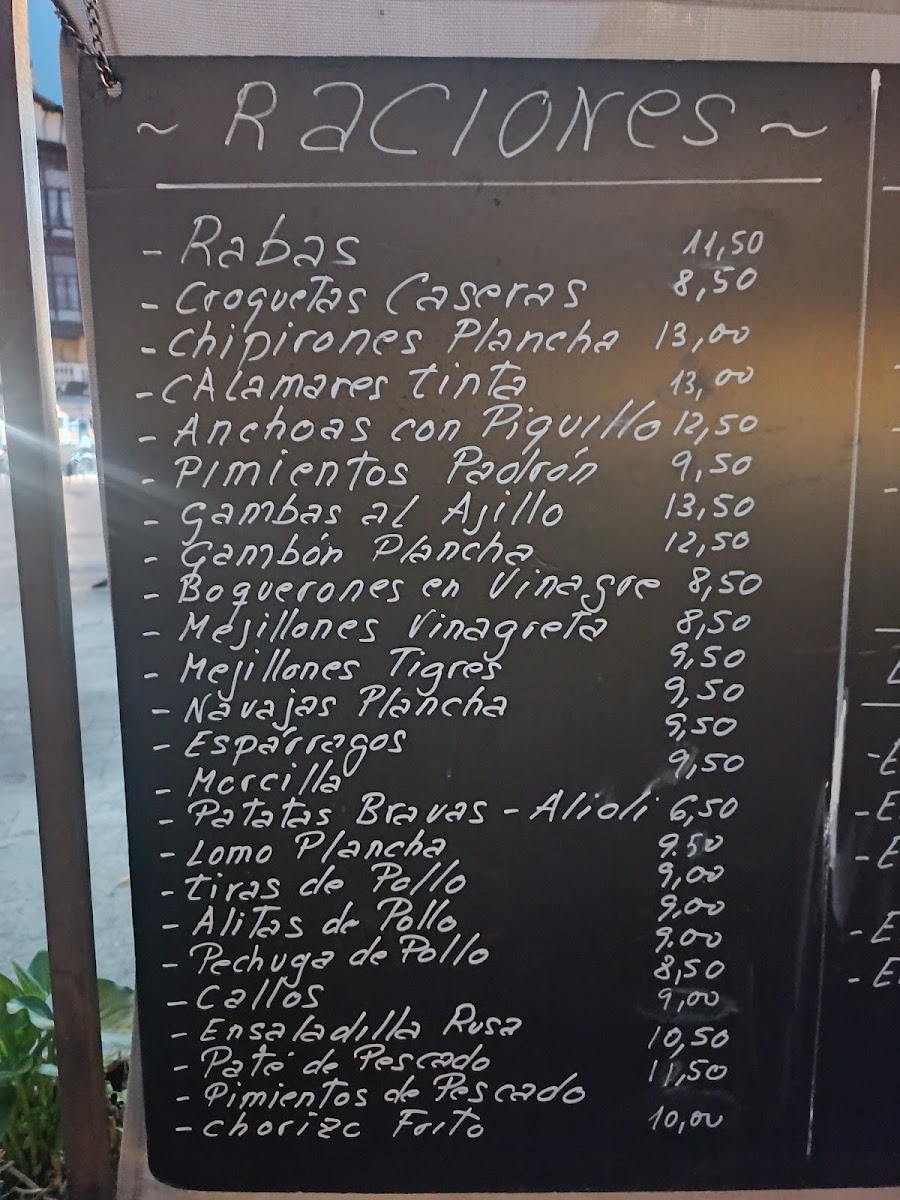 ~ RACIONES ~
- Rabas 11,50
- Croquetas Caseras 8,50
- Chipirones Plancha 13,00
- CAlamares tinta 13,00
- Anchoas con Piquillo 12,50
- Pimientos Padrón 9,50
- Gambas al Ajillo 13,50
- Gambón Plancha 12,50
- Boquerones en Vinagre 8,50
- Mejillones Vinagreta 8,50
- Mejillones Tigres 9,50
- Navajas Plancha 9,50
- Espárragos 9,50
- Morcilla 9,50
- Patatas Bravas - Alioli 6,50
- Lomo Plancha 9.50
- tiras de Pollo 9,00
- Alitas de Pollo 9,00
- Pechuga de Pollo 9.00
- Callos 8,50
- Ensaladilla Rusa 9,00
- Paté de Pescado 10,50
- Pimientos de Pescado 11,50
- chorizo Frito 10,00